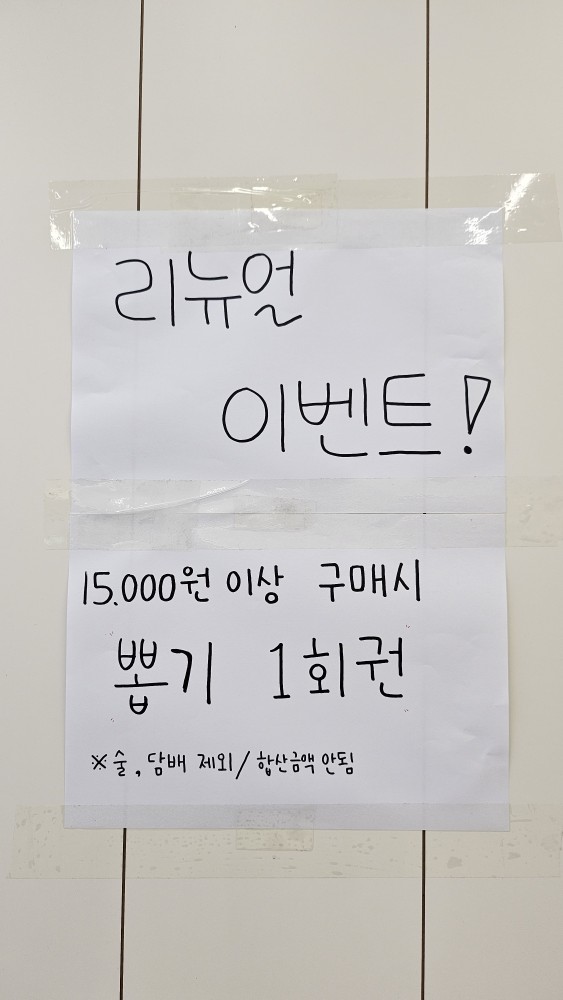 리뉴얼
이벤트!
15.000원 이상 구매시
뽑기 1회권
※술, 담배 제외/합산금액 안됨